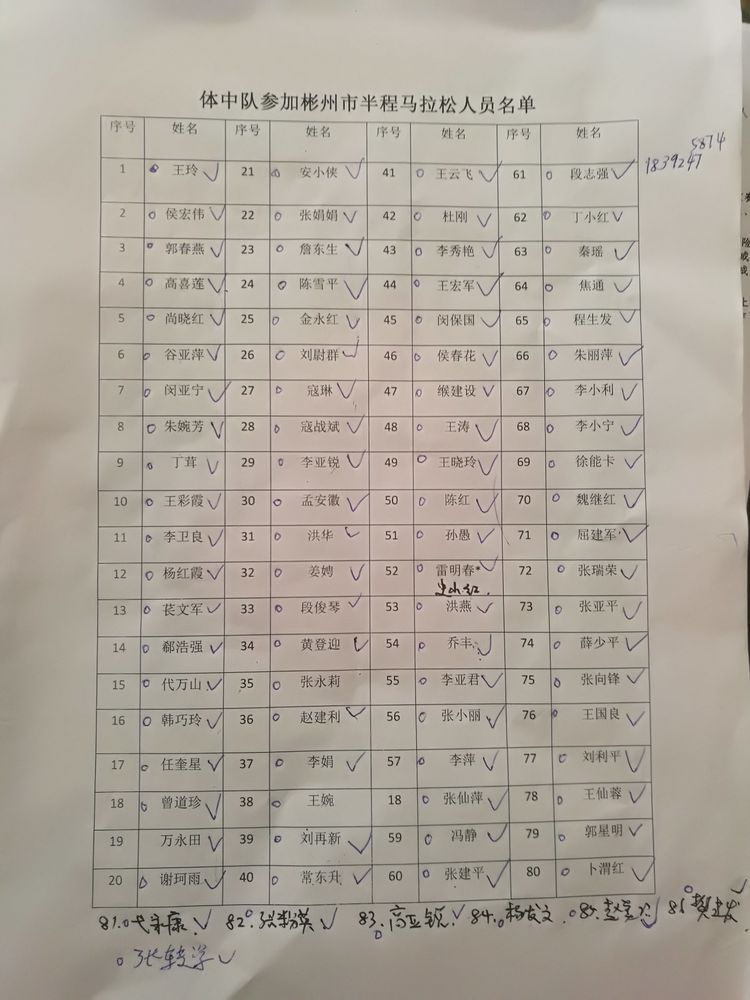 体中队参加彬州市半程马拉松人员名单
序号 姓名 序号 姓名 序号 姓名 序号 姓名
5874
1839247
1 王玲 21 安小侠 41 王云飞 61 段志强
2 侯宏伟 22 张娟娟 42 杜刚 62 丁小红
3 郭春燕 23 詹东生 43 李秀艳 63 秦瑶
4 高喜莲 24 陈雪平 44 王宏军 64 焦通
5 尚晓红 25 金永红 45 闵保国 65 程生发
6 谷亚萍 26 刘尉群 46 侯春花 66 朱丽萍
7 闵亚宁 27 寇琳 47 缑建设 67 李小利
8 朱婉芳 28 寇战斌 48 王涛 68 李小宁
9 丁茸 29 李亚锐 49 王晓玲 69 徐能卡
10 王彩霞 30 孟安徽 50 陈红 70 魏继红
11 李卫良 31 洪华 51 孙愚 71 屈建军
12 杨红霞 32 姜娉 52 雷明春* 72 张瑞荣
13 苌文军 33 段俊琴 53 洪燕 73 张亚平
14 郗浩强 34 黄登迎 54 乔丰 74 薛少平
15 代万山 35 张永莉 55 李亚君 75 张向锋
16 韩巧玲 36 赵建利 56 张小丽 76 王国良
17 任奎星 37 李娟 57 李萍 77 刘利平
18 曾道珍 38 王婉 18 张仙萍 78 王仙蓉
19 万永田 39 刘再新 59 冯静 79 郭星明
20 谢珂雨 40 常东升 60 张建平 80 卜渭红
81. 弋永康 82. 张粉英 83. 高亚锐 84. 杨发文 85. 86
张转学